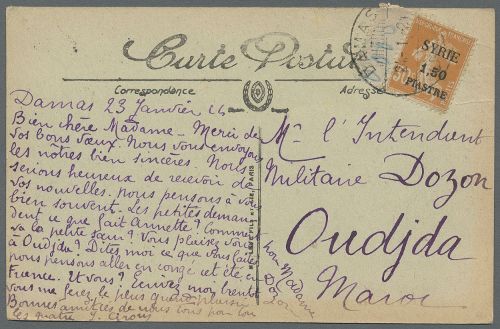 Carte Postale
Correspondance
Adresse
DAMAS
SYRIE
1,50
PIASTRE
Damas 23 Janvier 26
Bien chère Madame - Merci de
vos bons vœux. Nous vous envoyons
les nôtres bien sincères. Nous
serions heureux de recevoir de
vos nouvelles. Nous pensons à vous
bien souvent. Les petites deman-
dent ce que fait Annette? Comment
va la petite sœur? Vous plaisez vous
à Oudjda? Dites moi ce que vous faites
nous pensons aller en congé cet été en
France. Et vous? Ecrivez moi bientôt
vous me ferez le plus grand plaisir
Bonnes amitiés de nous tous pour tous
les quatre
bon Madame
Dozon
Mr l'Intendant
Militaire Dozon
Oudjda
Maroc